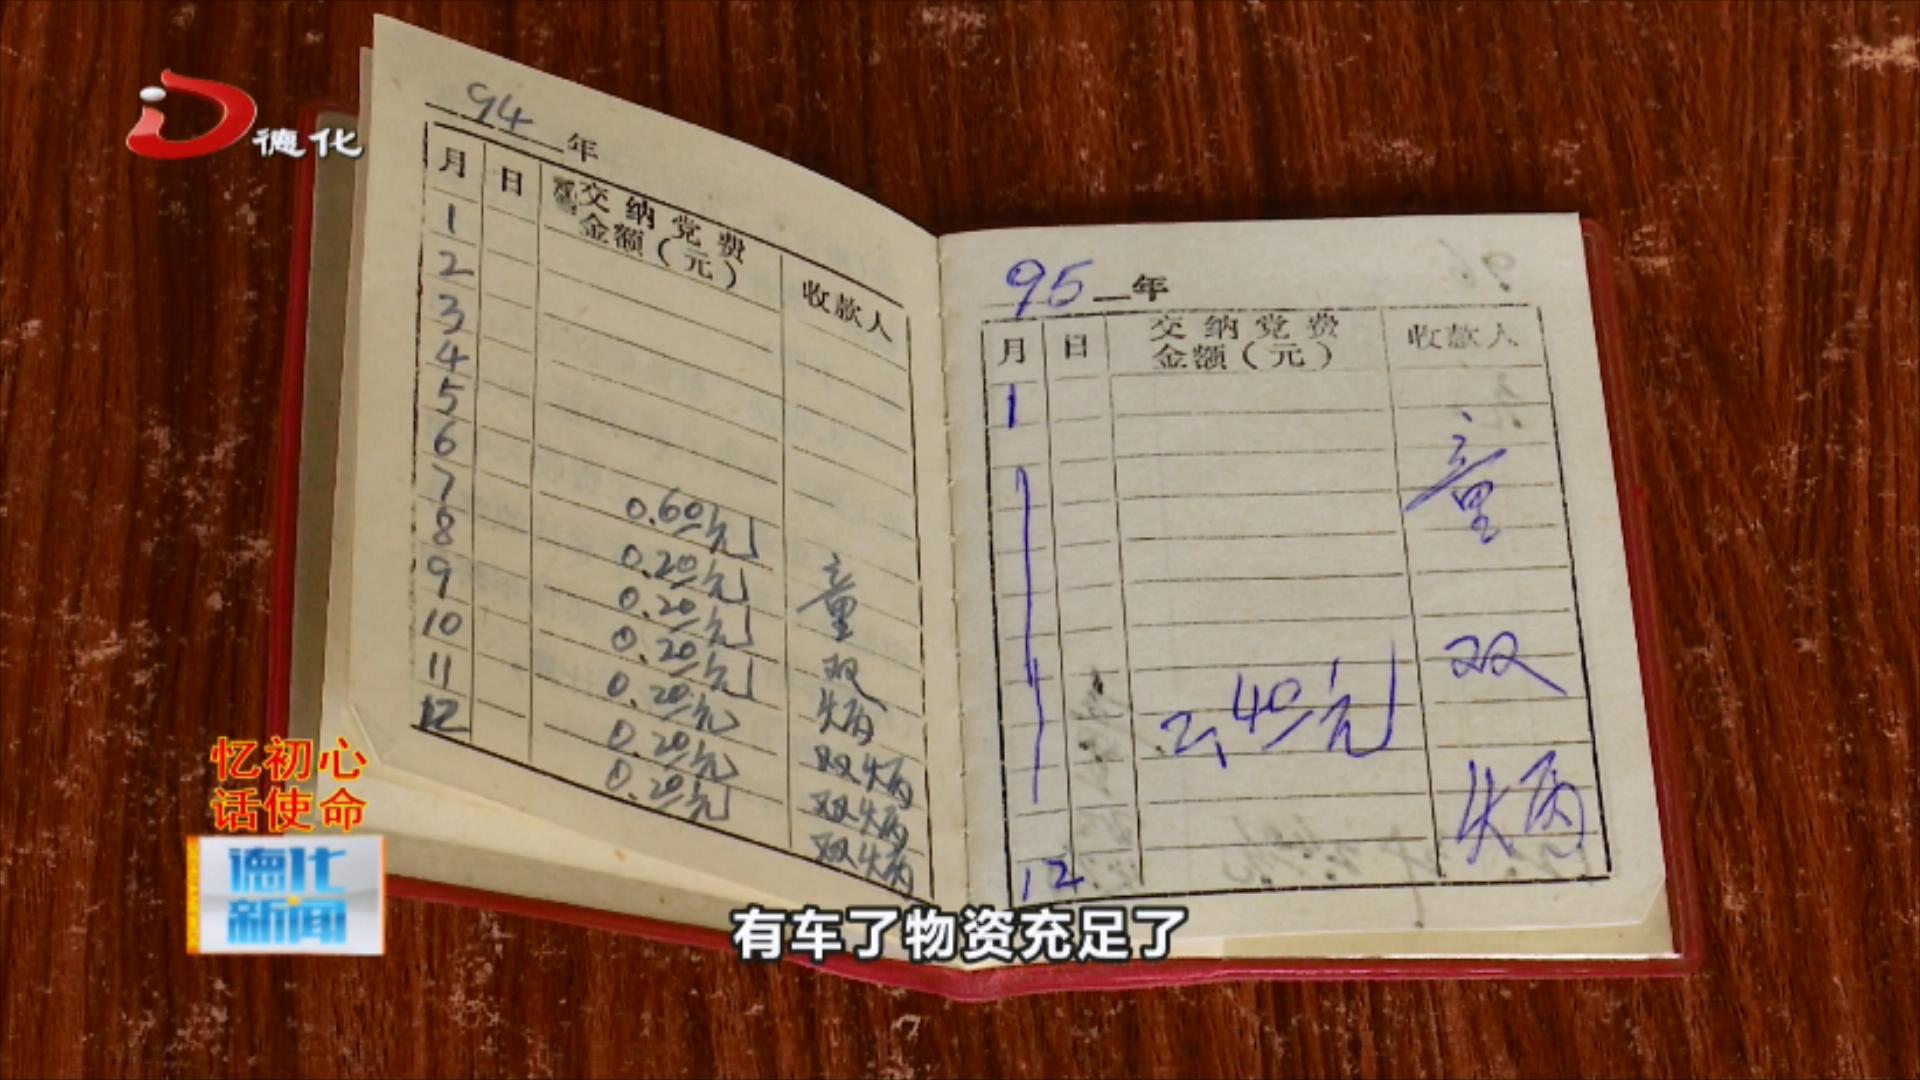 德化
94年
月 日 交纳党费金额(元) 收款人
1
2
3
4
5
6
7 0.60元
8 0.20元 童
9 0.20元
10 0.20元 双
11 0.20元
12 0.20元 双
0.20元 双
双
95年
月 日 交纳党费金额(元) 收款人
1
童
双
2.40元
12
忆初心
话使命
德化
新闻
有车了物资充足了